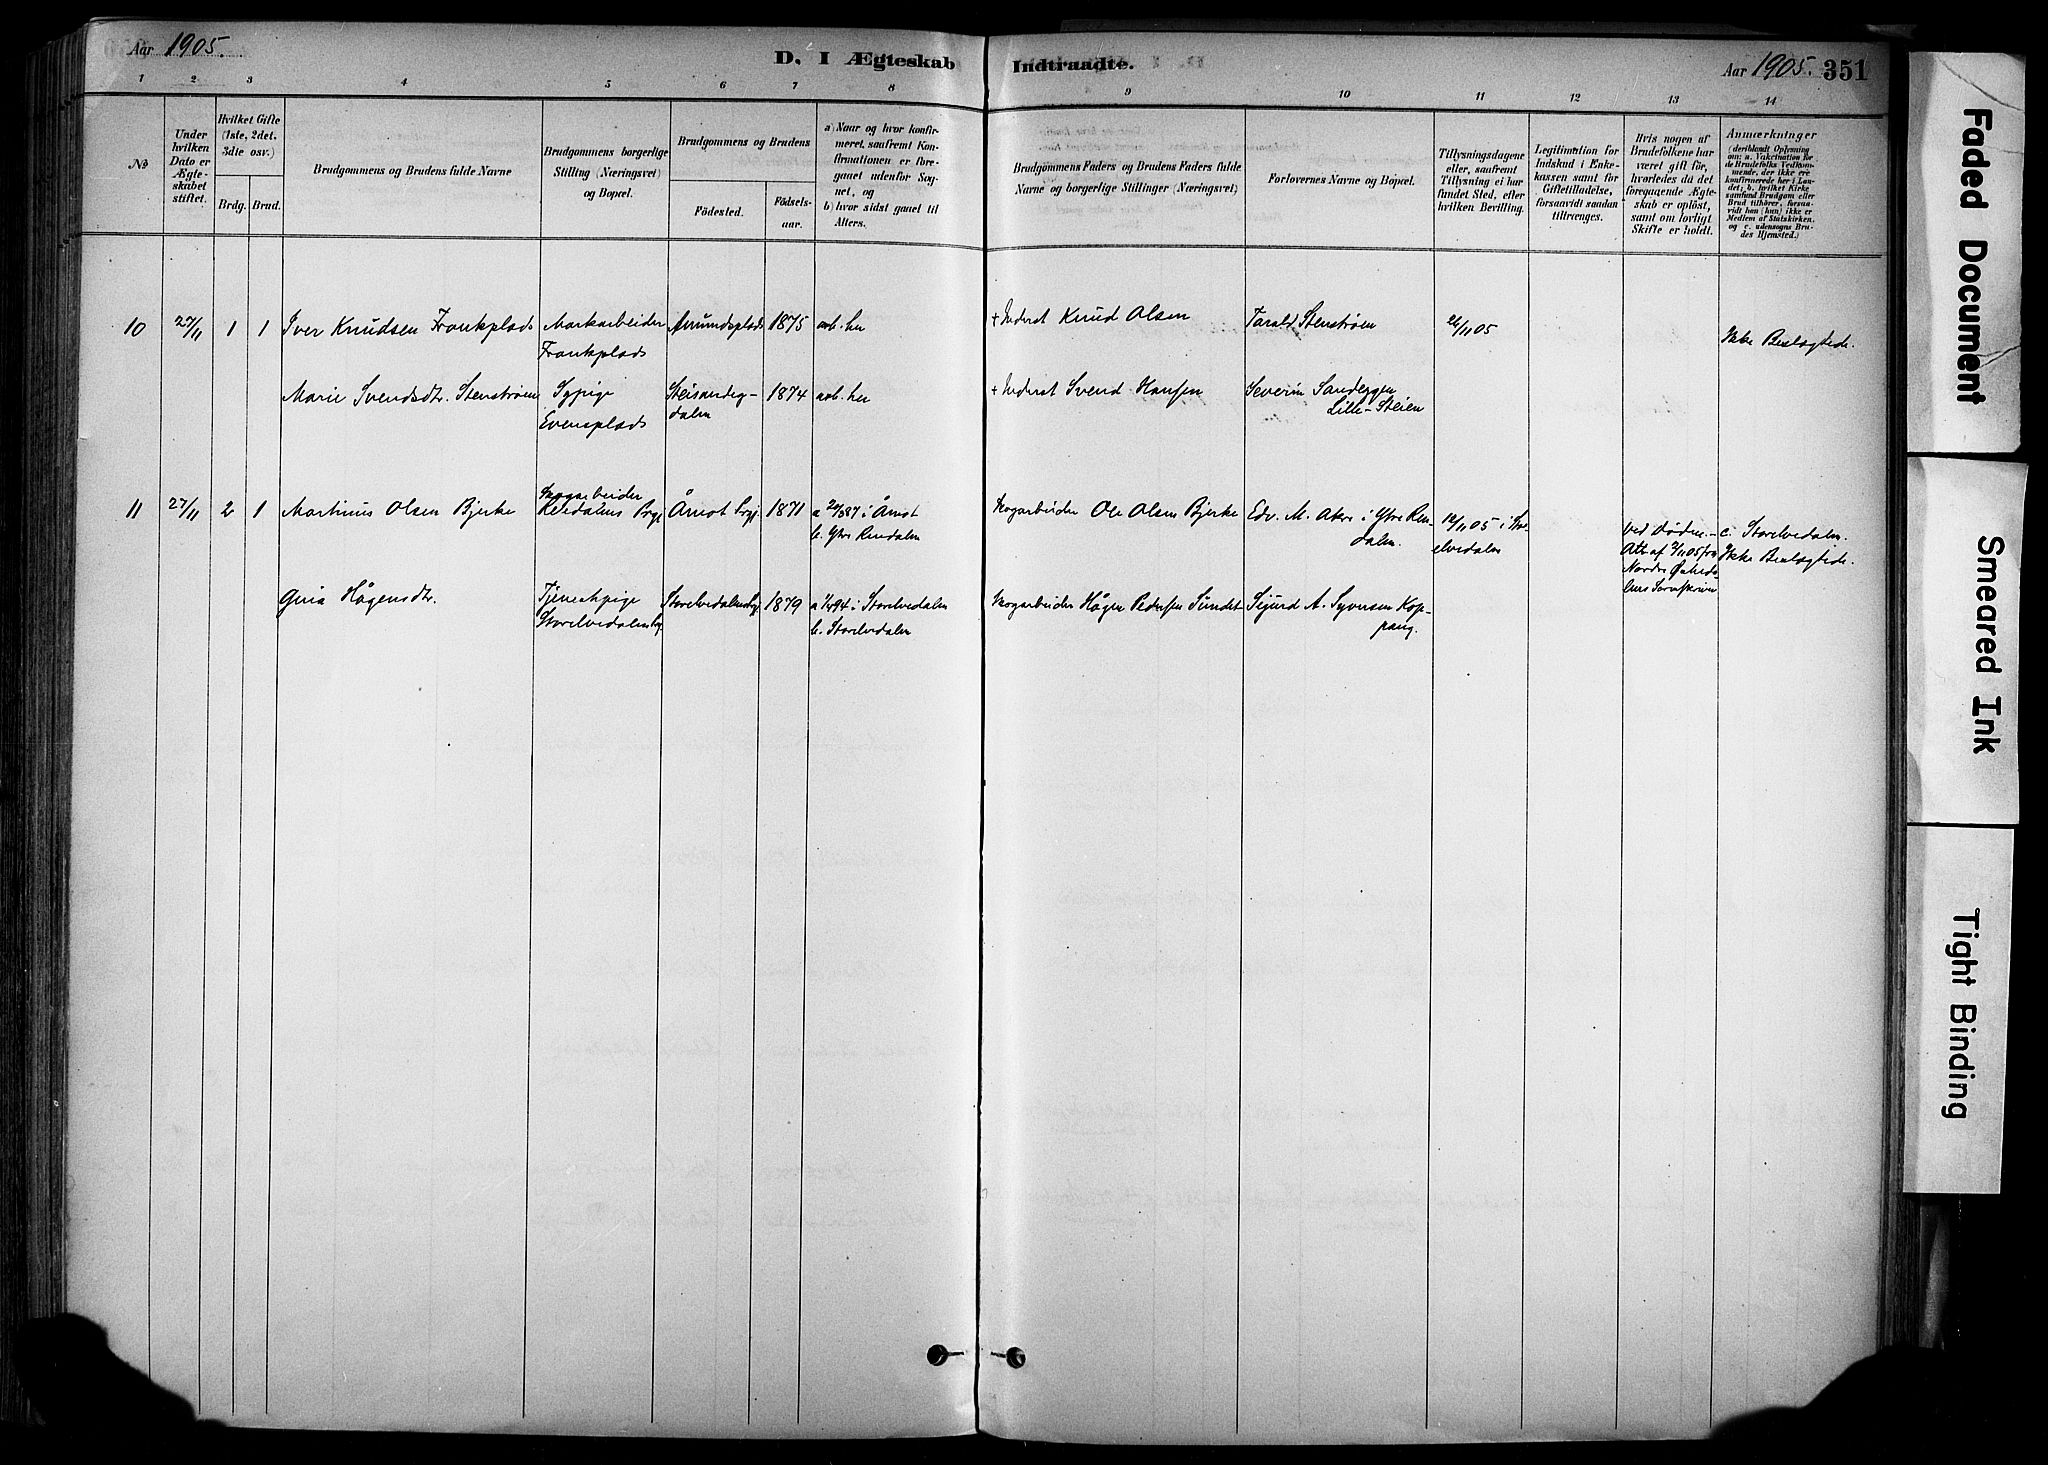 Aar 1905.
D. I Ægteskab Indtraadte.
Aar 1905. 351
1 2 3 4 5 6 7 8 9 10 11 12 13 14
No
Under
hvilken
Dato er
Ægte-
skabet
stiftet.
Hvilket Gifte
(1ste, 2det,
3die osv.)
Brdg. Brud.
Brudgommens og Brudens fulde Navne
Brudgommens borgerlige
Stilling (Næringsvei)
og Bopæl.
Brudgommens og Brudens
Fødested.
Fødsels-
aar.
a) Naar og hvor konfir-
meret, saafremt Kon-
firmationen er fore-
gaaet udenfor Sog-
net, og
b) hvor sidst gaaet til
Alters.
Brudgommens Faders og Brudens Faders fulde
Navne og borgerlige Stillinger (Næringsvei)
Forlovernes Navne og Bopæl.
Tillysningsdagene
eller, saafremt
Tillysning ei har
fundet Sted, efter
hvilken Bevilling.
Legitimation for
Indskud i Enke-
kassen samt for
Giftetilladelse,
forsaavidt saadan
tiltrænges.
Hvis nogen af
Brudefolkene har
været gift før,
hvorledes da det
foregaaende Ægte-
skab er opløst,
samt om lovligt
Skifte er holdt.
Anmærkninger
(deriblandt Oplysning
om: a. Vakcination for
de Brudefolks Vedkom-
mende, der ikke ere
konfirmerede her i Lan-
det; b. hvilket Kirke-
samfund Brudgom eller
Brud tilhører, forsaa-
vidt han (hun) ikke er
Medlem af Statskirken,
og c. udensogns Bru-
des Hjemsted.)
10 27/11 1 1 Iver Knudsen Frankplads Markarbeider Amundsplads 1875 avb. her + Inderst Knud Olsen Tarald Stenstrøm 26/11 05 Ikke Beslægtede.
Frankplads
Marie Svendsdtr. Stenstrøm Sypige 1874 avb. her + Inderst Svend Hansen Severin Sandeggen
Evensplads dalen Lille-Steien
11 27/11 2 1 Martinus Olsen Bjerke Skogarbeider Åmot 1871 i Åmot Skogarbeider Ole Olsen Bjerke Edv. M. Akre i Ytre Ren- 12/11 05 i Stor- Ved Døden.- c. Storelvedalen.
b. Ytre Rendalen dalen. elvedalen Att af 2/11 05 fra Ikke Beslægtede.
Nordre Østerda-
lens Sorenskriver
Gina Hågensdtr. Tjenestpige 1879 i Storelvedalen Skogarbeider Hågen Pedersen Sundet Sigurd A. Syversen Kop-
b. Storelvedalen pang.
Faded Document
Smeared Ink
Tight Binding